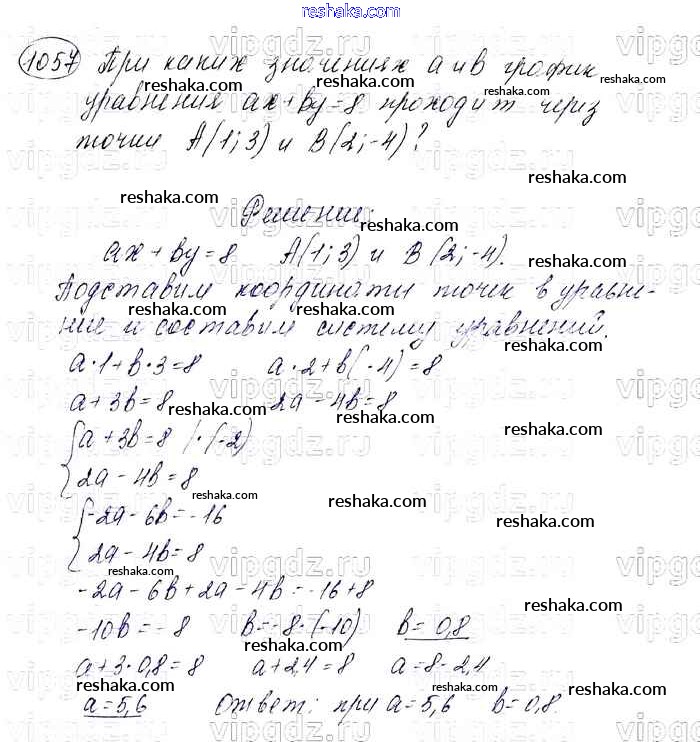 www.reshaka.com
1057 При каких значениях a и b график
уравнения ax+by=8 проходит через
точки A(1;3) и B(2;-4)?
Решение:
ax+by=8 A(1;3) и B(2;-4).
Подставим координаты точек в уравне-
ние и составим систему уравнений.
a·1+b·3=8 a·2+b(-4)=8
a+3b=8 2a-4b=8
{a+3b=8 |·(-2)
{2a-4b=8
{-2a-6b=-16
{2a-4b=8
-2a-6b+2a-4b=-16+8
-10b=-8 b=-8:(-10) b=0,8
a+3·0,8=8 a+2,4=8 a=8-2,4
a=5,6 Ответ: при a=5,6 b=0,8.